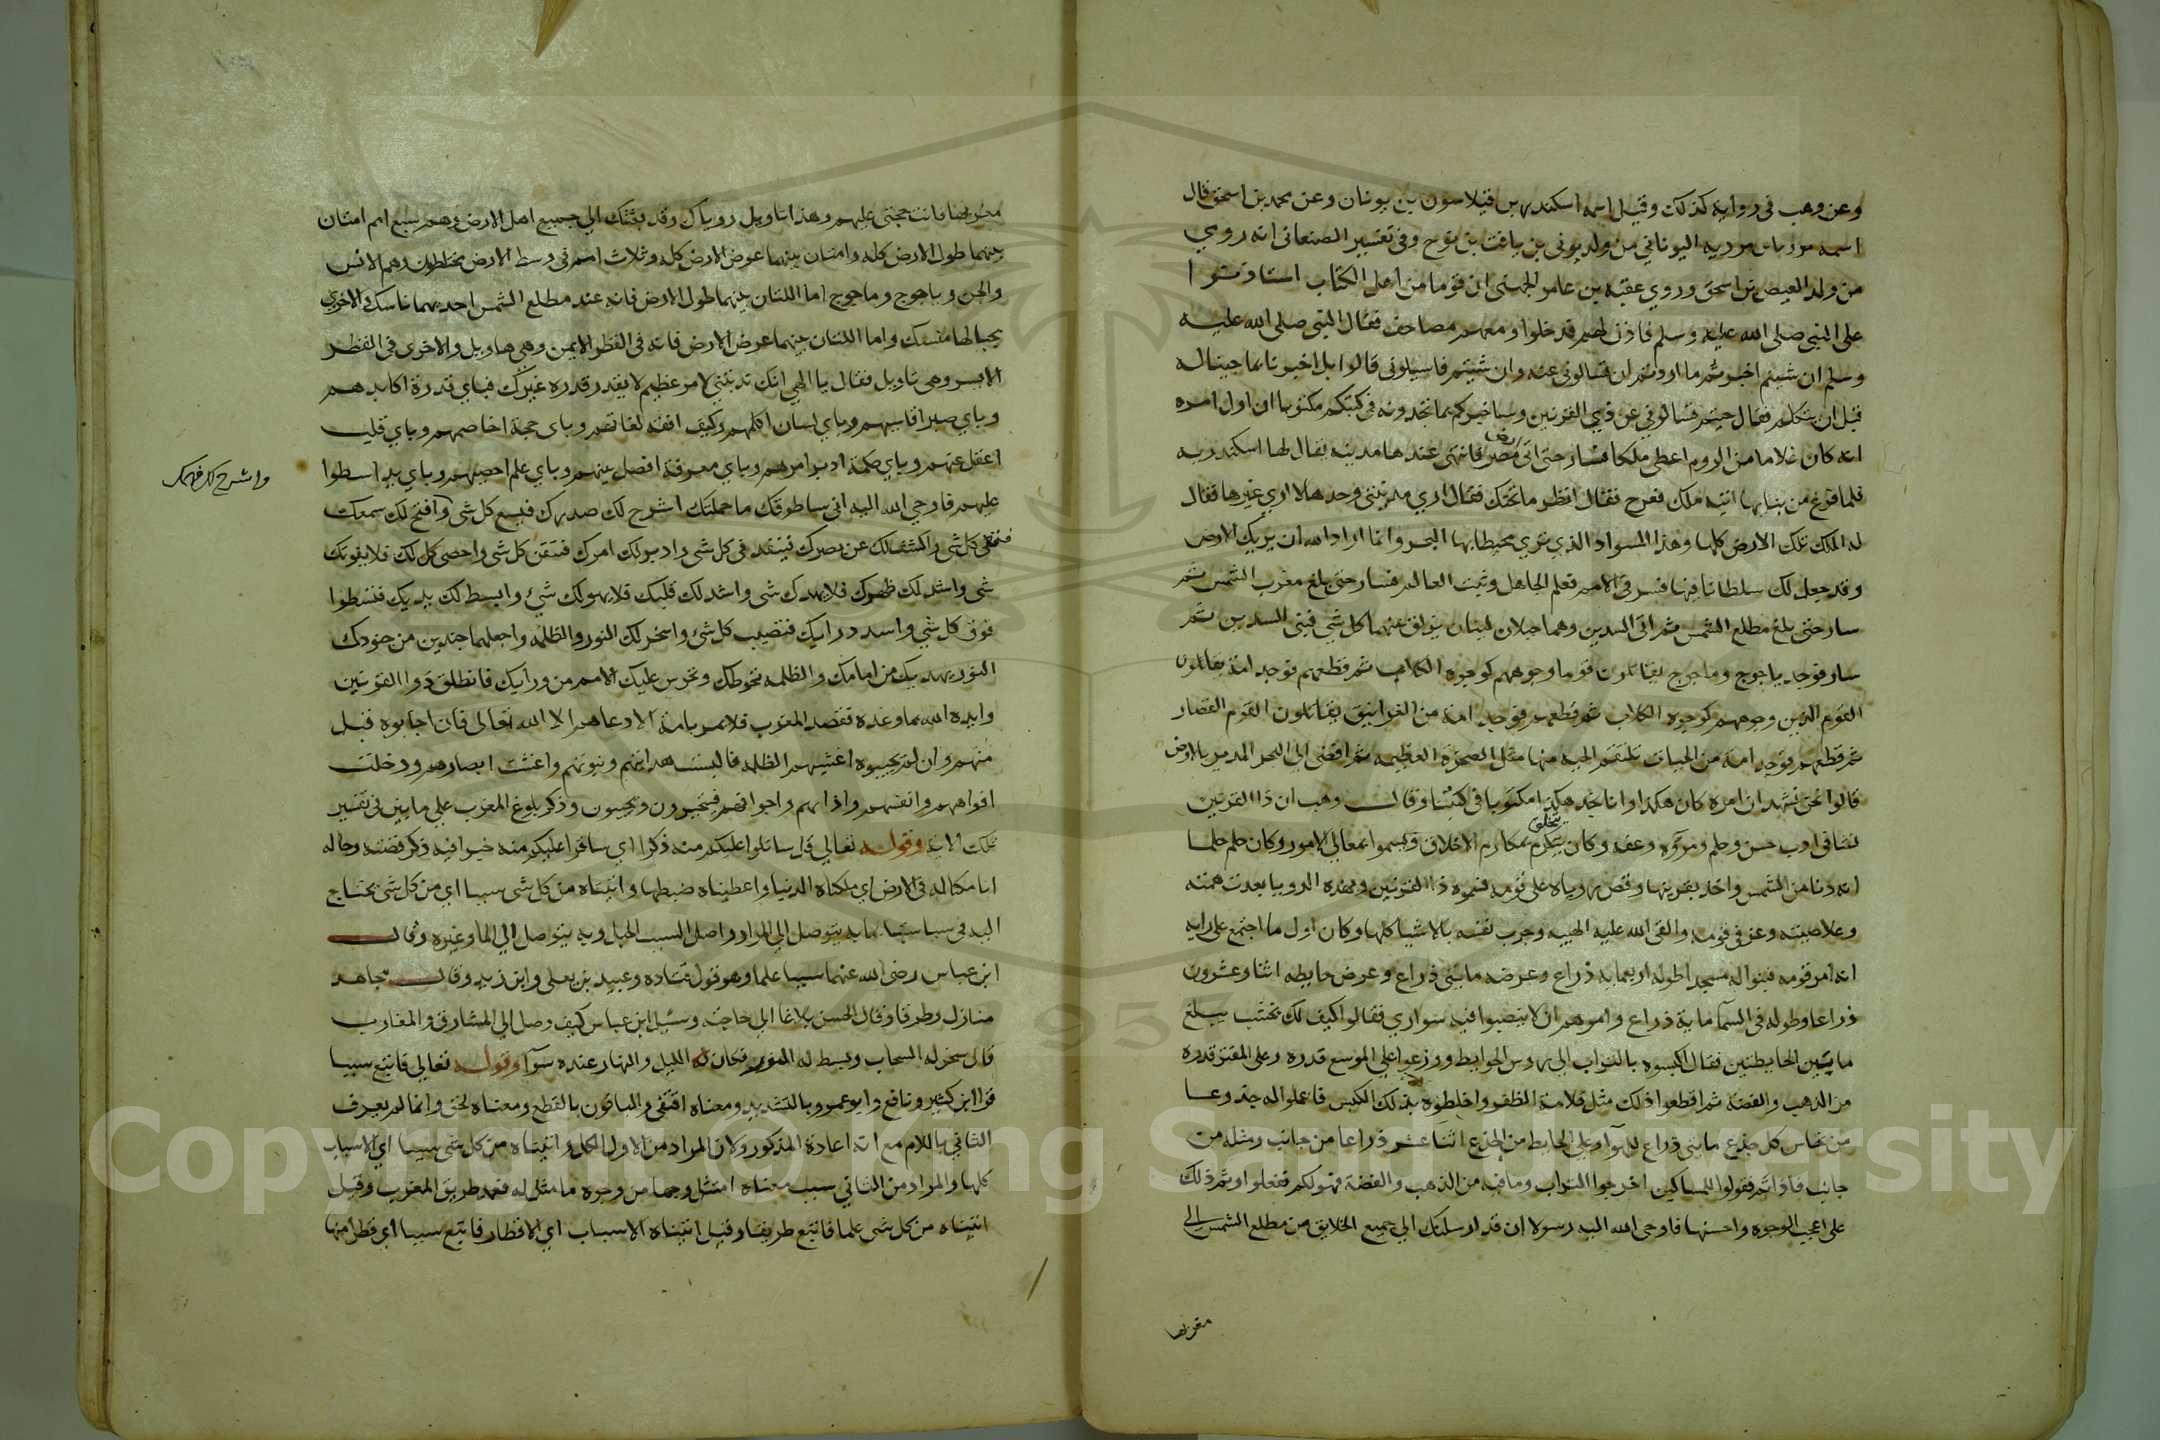 وعن وهب فى رواية كذلك وقيل اسمه اسكندر بن فيلاسون بن يونان وعن محمد بن اسحق قال
اسمه مرزبان مردبه اليوناني من ولد يونى بن يافث بن نوح وفى تفسير الصنعانى انه روى
من ولد العيص بن اسحق وروي عقبة بن عامر الجهني ان قوما من اهل الكتاب استاذنوا
على النبي صلى الله عليه وسلم فاذن لهم قد خلوا ومعهم مصاحف فقال النبي صلى الله عليه
وسلم ان شيتم اخبرتكم ما اردتم ان تسالونى عنه وان شيتم فاسيلونى قالوا بل اخبرنا بما جينا له
قبل ان نتكلم فقال جيتم تسالونى عن ذي القرنين وساخبركم بما تجدونه فى كتبكم مكتوبا ان اول امره
انه كان غلاما من الروم اعطى ملكا فسار حتى اتى ارض مصر فابتنى عندها مدينة يقال لها اسكندرية
فلما فرغ من بنايها اتيه ملك فعرج فقال انظر ما تحتك فقال اري مدينتى وحدها لا اري غيرها فقال
له الملك تلك الارض كلها وهذا السواد الذي تري محيطا بها البحر وانما اراد الله ان يريك الارض
وقد جعل لك سلطانا فيها فسر فى الامم فعلم الجاهل وثبت العالم فسار حتى بلغ مغرب الشمس ثم
سار حتى بلغ مطلع الشمس ثم اتى السدين وهما جبلان لينان يزلق عنهما كل شي فبنى السدين ثم
سار فوجد ياجوج وماجوج يقاتلون قوما وجوههم كوجوه الكلاب ثم قطعهم فوجد امة يقاتلون
القوم الذين وجوههم كوجوه الكلاب ثم قطعهم فوجد امة من الغرانيق يقاتلون القوم القصار
ثم قطعهم فوجد امة من الحيات تلتقم الحية منها مثل الصخرة العظيمة ثم افضى الى البحر المدير بالارض
قالوا نحن نشهد ان امره كان هكذا وانا نجد هكذا مكتوبا فى كتبنا وقال وهب ان ذا القرنين
نشا فى ادب حسن وحلم ومروه وعفه وكان يتكرم يتخلق بمكارم الاخلاق ويسموا بمعالى الامور وكان حلم حلما
انه دنا من الشمس واخذ بقرنيها وقص روياه على قومه فسموه ذا القرنين وبهذه الرويا بعدت همته
وعلا صيته وعز فى قومه والقى الله عليه الهيبه وحرب نفسه بالاشيا كلها وكان اول ما اجتمع على رايه
انه امر قومه فبنوا له مسجدا طوله اربعماية ذراع وعرضه مايتى ذراع وعرض حايطه اثنا وعشرون
ذراعا وطوله فى السما ماية ذراع وامرهم ان لا ينصبوا فيه سواري فقالوا كيف لك بخشب يبلغ
ما بين الحايطين فقال اكبسوه بالتراب الى روس الحوايط ووزعوا على الموسع قدره وعلى المقتر قدره
من الذهب والفضة ثم اقطعوا ذلك مثل قلامة الظفر واخلطوه بذلك الكبس فاعملوا له جذوعا
من نحاس كل جذع مايتى ذراع للهوا وعلى الحايط من الجذع اثنا عشر ذراعا من جانب ومثله من
جانب فاذا تم فقولوا للمساكين اخرجوا التراب وما فيه من الذهب والفضة فهو لكم ففعلوا وتم ذلك
على اعجب الوجوه واحسنها فاوحى الله اليه رسولا ان قد ارسلتك الى جميع الخلايق من مطلع الشمس الى
مغربها
مغربها فانت حجتى عليهم وهذا تاويل روياك وقد بعثتك الى جميع اهل الارض وهم سبع امم امتان
بينهما طول الارض كله وامتان بينهما عرض الارض كله وثلاث امم فى وسط الارض مختلطون وهم الانس
والجن وياجوج وماجوج اما اللتان بينهما طول الارض فانه عند مطلع الشمس احديهما ناسك والاخرى
بحيالها منسك واما اللتان بينهما عرض الارض فانه فى القطر الايمن وهى هاويل والاخرى فى القطر
الايسر وهى تاويل فقال يا الهي انك تدبتنى لامر عظيم لا يقدر قدره غيرك فباي قدرة اكابدهم
وباي صبر اقاسيهم وباي لسان اكلمهم وكيف افقه لغاتهم وباى حجة اخاصمهم وباي قلب
اعقل عنهم وباي حكمة ادبر امرهم وباي معرفة افصل بينهم وباي علم احصيهم وباي يد اسطوا
عليهم فاوحى الله اليه انى ساطوقك ما حملتك اشرح لك صدرك فيسع كل شى وافتح لك سمعك
فتعى كل شى واكشف لك عن بصرك فينفد فى كل شى وادبر لك امرك فتتقن كل شى واحصى كل لك فلا يفوتك
شى واشد لك ظهرك فلا يهدك شى واشد لك قلبك فلا يهولك شيء وابسط لك يديك فتسطوا
فوق كل شي واسدد رايك فتصيب كل شئ واسخر لك النور والظلمه واجعلهما جندين من جنودك
النور يهديك من امامك والظلمه تحوطك وتحرس عليك الامم من ورايك فانطلق ذوا القرنين
وايده الله بما وعده فقصد المغرب فلا يمر بامة الا دعاهم الا الله تعالى فان اجابوه قبل
منهم وان لم يجيبوه اغشيهم الظلمه فالبست مدايتهم وبيوتهم واغشت ابصارهم ودخلت
افواههم وانفهم واذانهم واجوافهم فيتحيرون ويجيبون وذكر بلوغ المغرب على ما بين فى تفسير
تلك الاية وقوله تعالى قل ساتلوا عليكم منه ذكرا اي ساقرا عليكم منه خبرا فيه ذكر قصته وحاله
انا مكنا له فى الارض اي ملكناه الدنيا واعطيناه ضبطها واتيناه من كل شى سببا اي من كل شى يحتاج
اليه فى سياستها ما به يتوصل الى المراد واصل السبب الحبل وبه يتوصل الى الما وغيره وقال
ابن عباس رضى الله عنهما سببا علما وهو قول قتاده وعبيد بن يعلى وابن زيد وقال مجاهد
منازل وطرقا وقال الحسن بلاغا الى حاجته وسئل ابن عباس كيف وصل الى المشارق والمغارب
قال سخر له السحاب وبسط له النور فكان له الليل والنهار عنده سوآ وقوله تعالى فاتبع سببا
قرا ابن كثير ونافع وابو عمرو بالتشديد ومعناه اقتفى والباقون بالقطع ومعناه لحق وانما لم يعرف
الثانى باللام مع انه اعادة المذكور ولان المراد من الاول الكل واتيناه من كل شى سببا اي الاسباب
كلها والمراد من الثاني سبب معناه امتثل وجها من وجوه ما مثل له فعمد طريق المغرب وقيل
اتيناه من كل شى علما فاتبع طريقا وقيل اتيناه الاسباب اي الاقطار فاتبع سببا اى قطرا منها
Copyright © King Saud University
1957